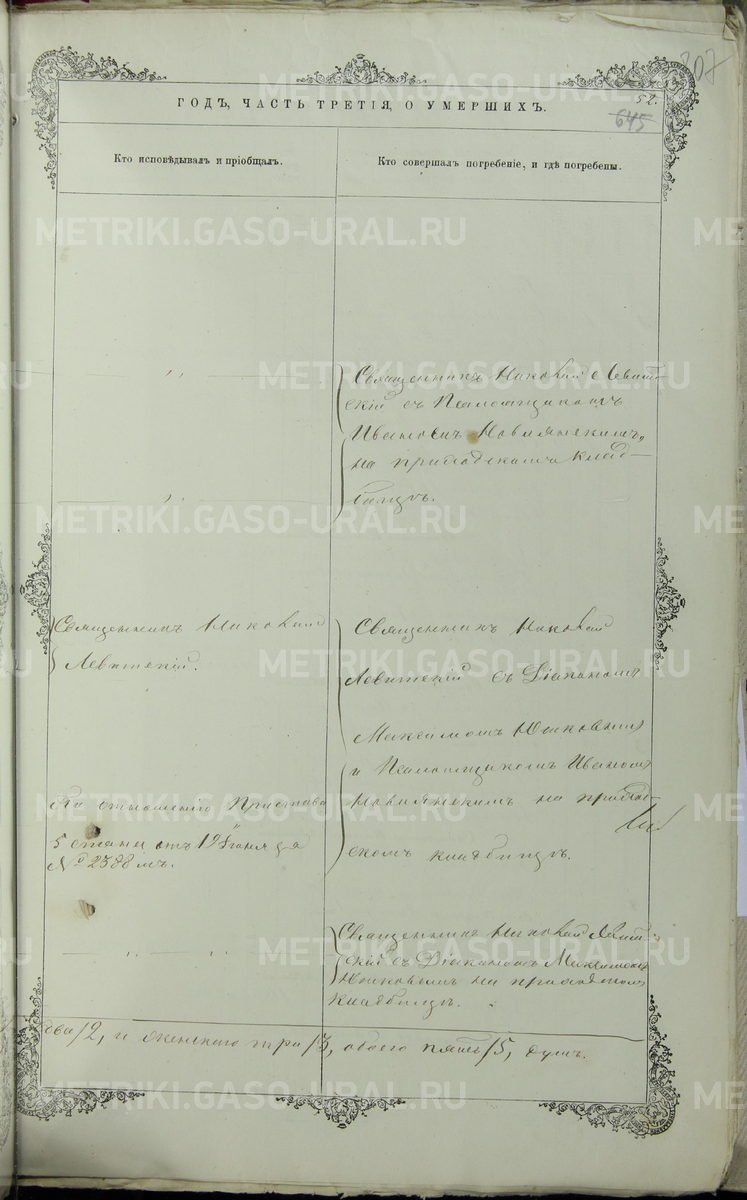 307
52.
645
ГОДЪ, ЧАСТЬ ТРЕТІЯ, О УМЕРШИХЪ.
Кто исповѣдывалъ и пріобщалъ.
Кто совершалъ погребеніе, и гдѣ погребены.
„
Священникъ Николай Левит-
скій съ Псаломщикомъ
Иваномъ Новиянскимъ,
на приходскомъ клад-
„
бищѣ.
Священникъ Николай
Левитскій.
Священникъ Николай
Левитскій съ Діакономъ
Максимомъ
и Псаломщикомъ Иваномъ
Новиянскимъ на приход-
скомъ кладбищѣ.
По отношенію Пристава
5 стана отъ 19 Января
№ 2388 мъ.
„
Священникъ Николай Левит-
скій съ Діакономъ Максимомъ
на приходскомъ
кладбищѣ.
два/2, и женскаго три/3, обоего пять/5, душъ.
METRIKI.GASO-URAL.RU